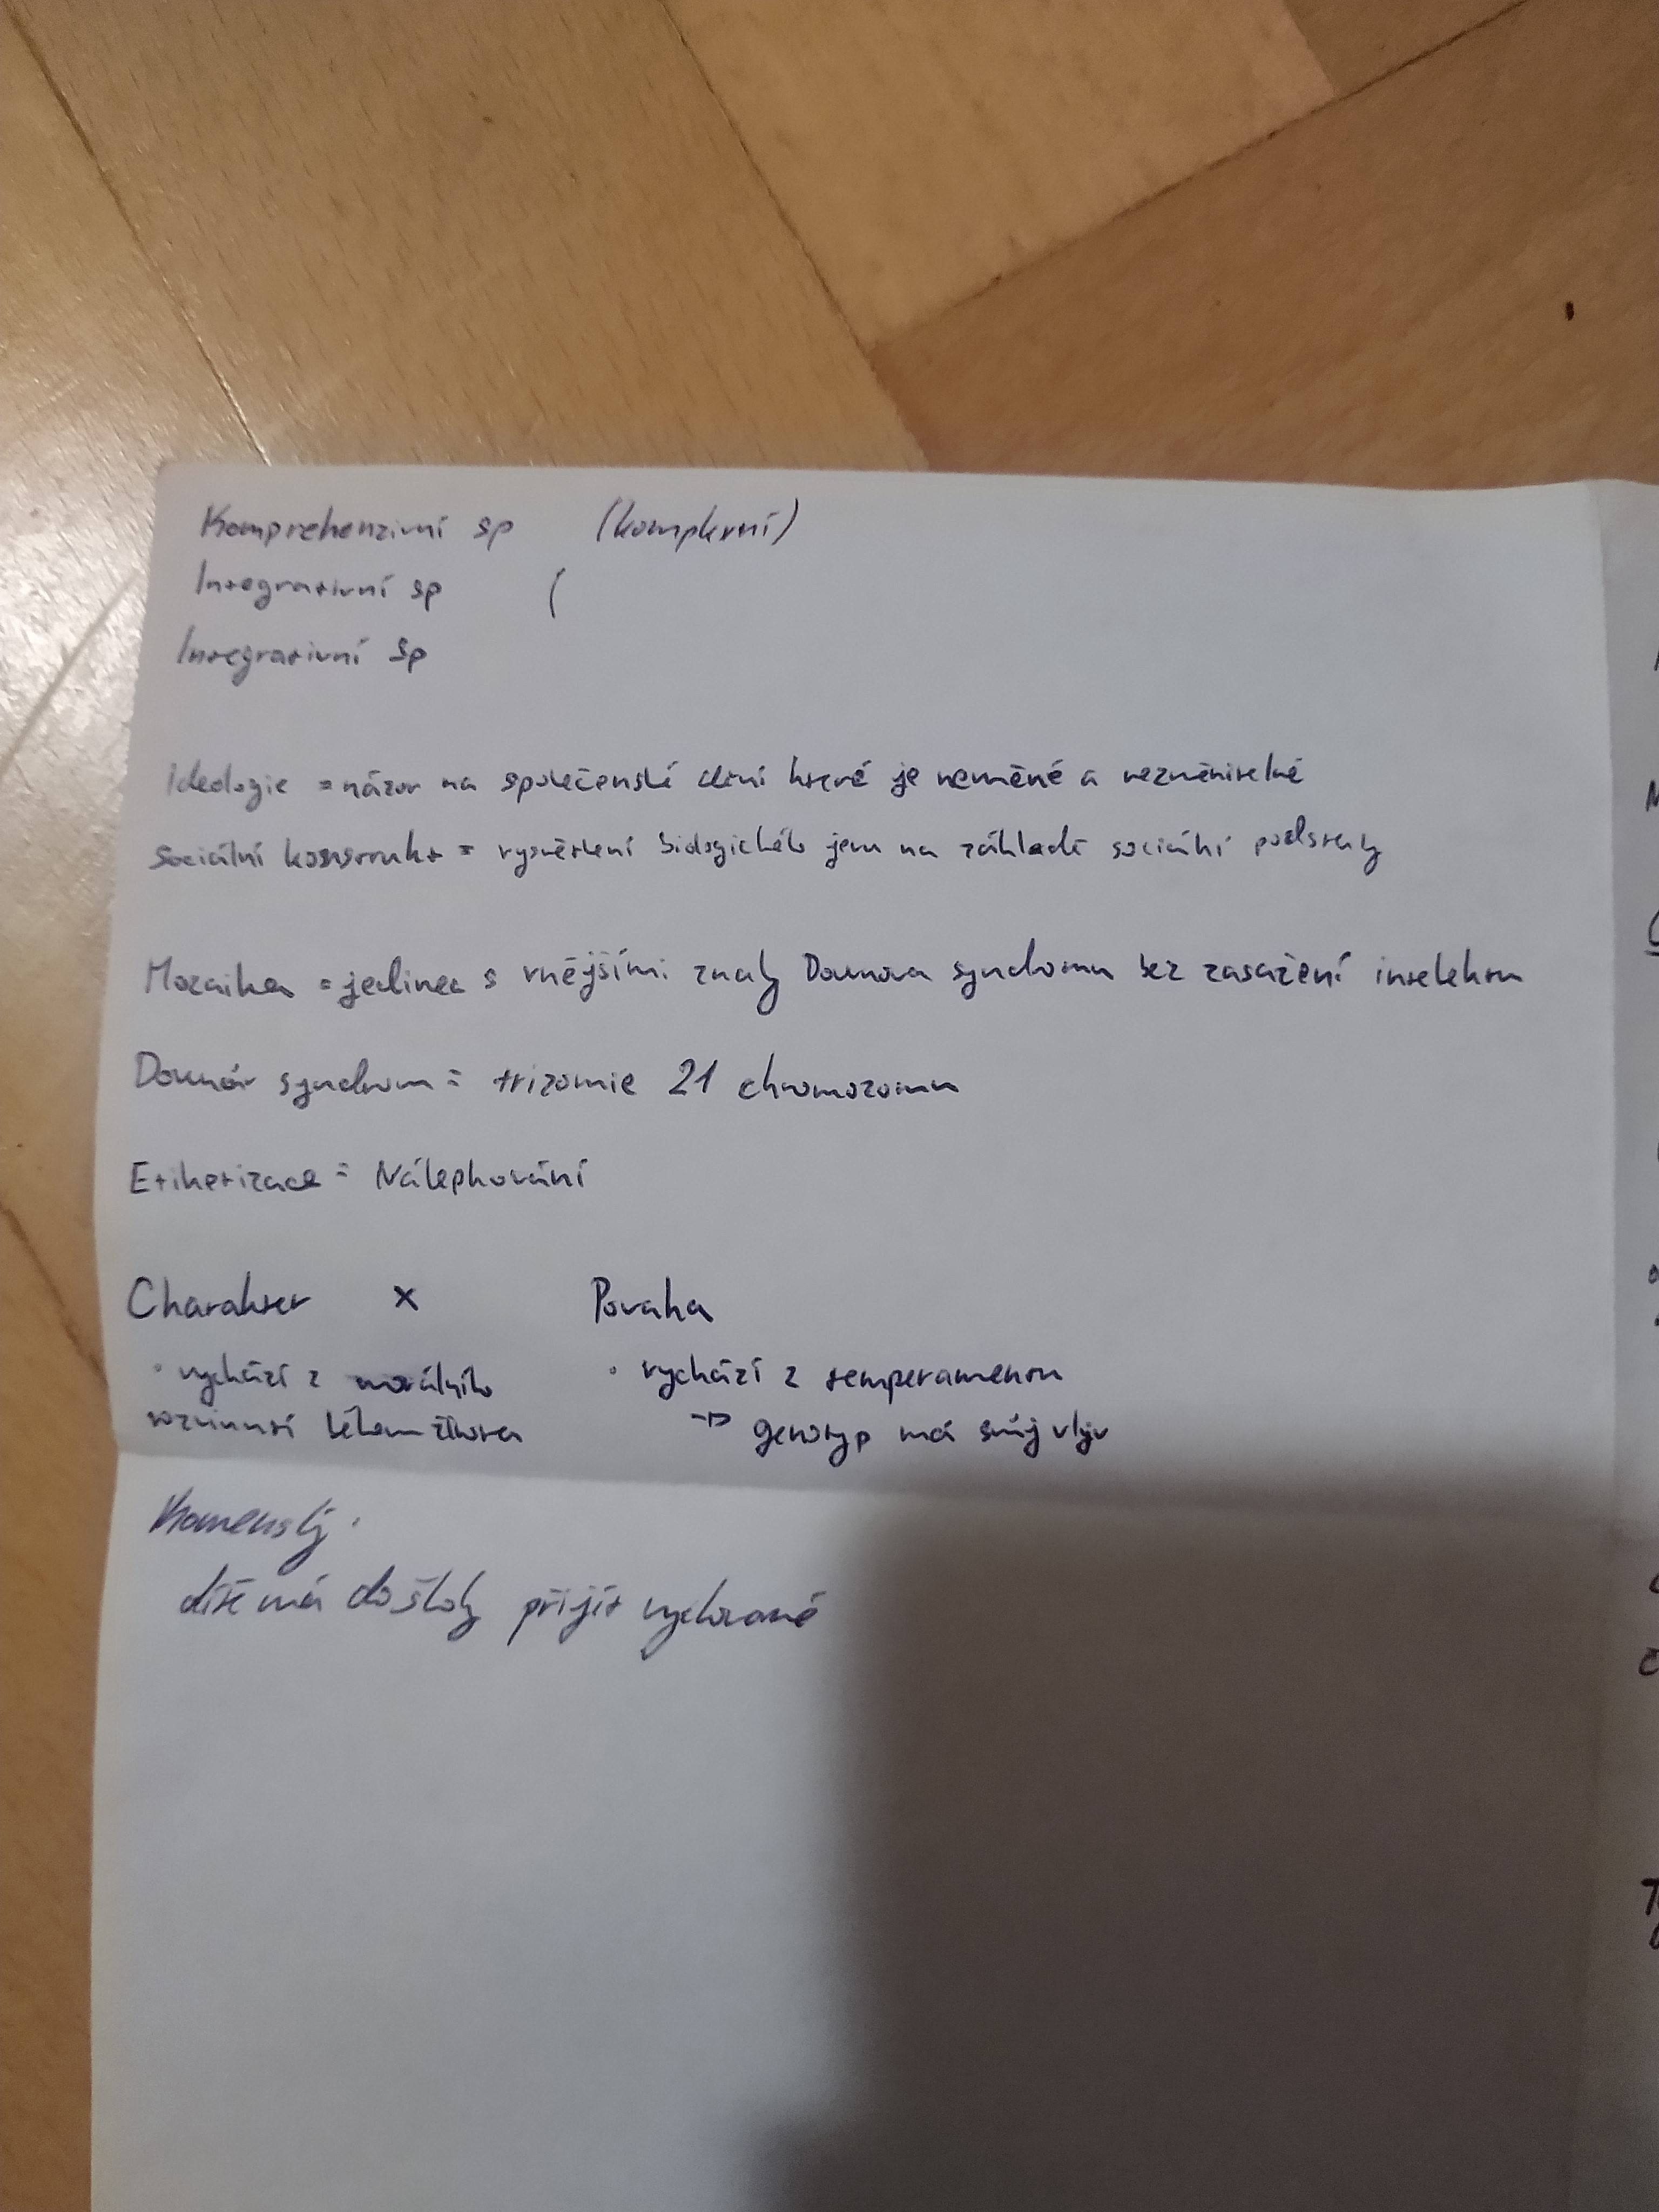 Komprehenzivní sp (komplexní)
Integrativní sp (
Integrativní sp
Ideologie = názor na společenské dění které je neměné a nezměnitelné
Sociální konstrukt = vysvětlení biologického jevu na základě sociální podstaty
Mozaika = jedinec s vnějšími znaky Downova syndromu bez zasažení intelektu
Downův syndrom = trizomie 21 chromozomu
Etiketizace = Nálepkování
Charakter x Povaha
• vychází z morálního • vychází z temperamentu
rozvinutí během života → genotyp má svůj vliv
Komenský:
dítě má do školy přijít vychované